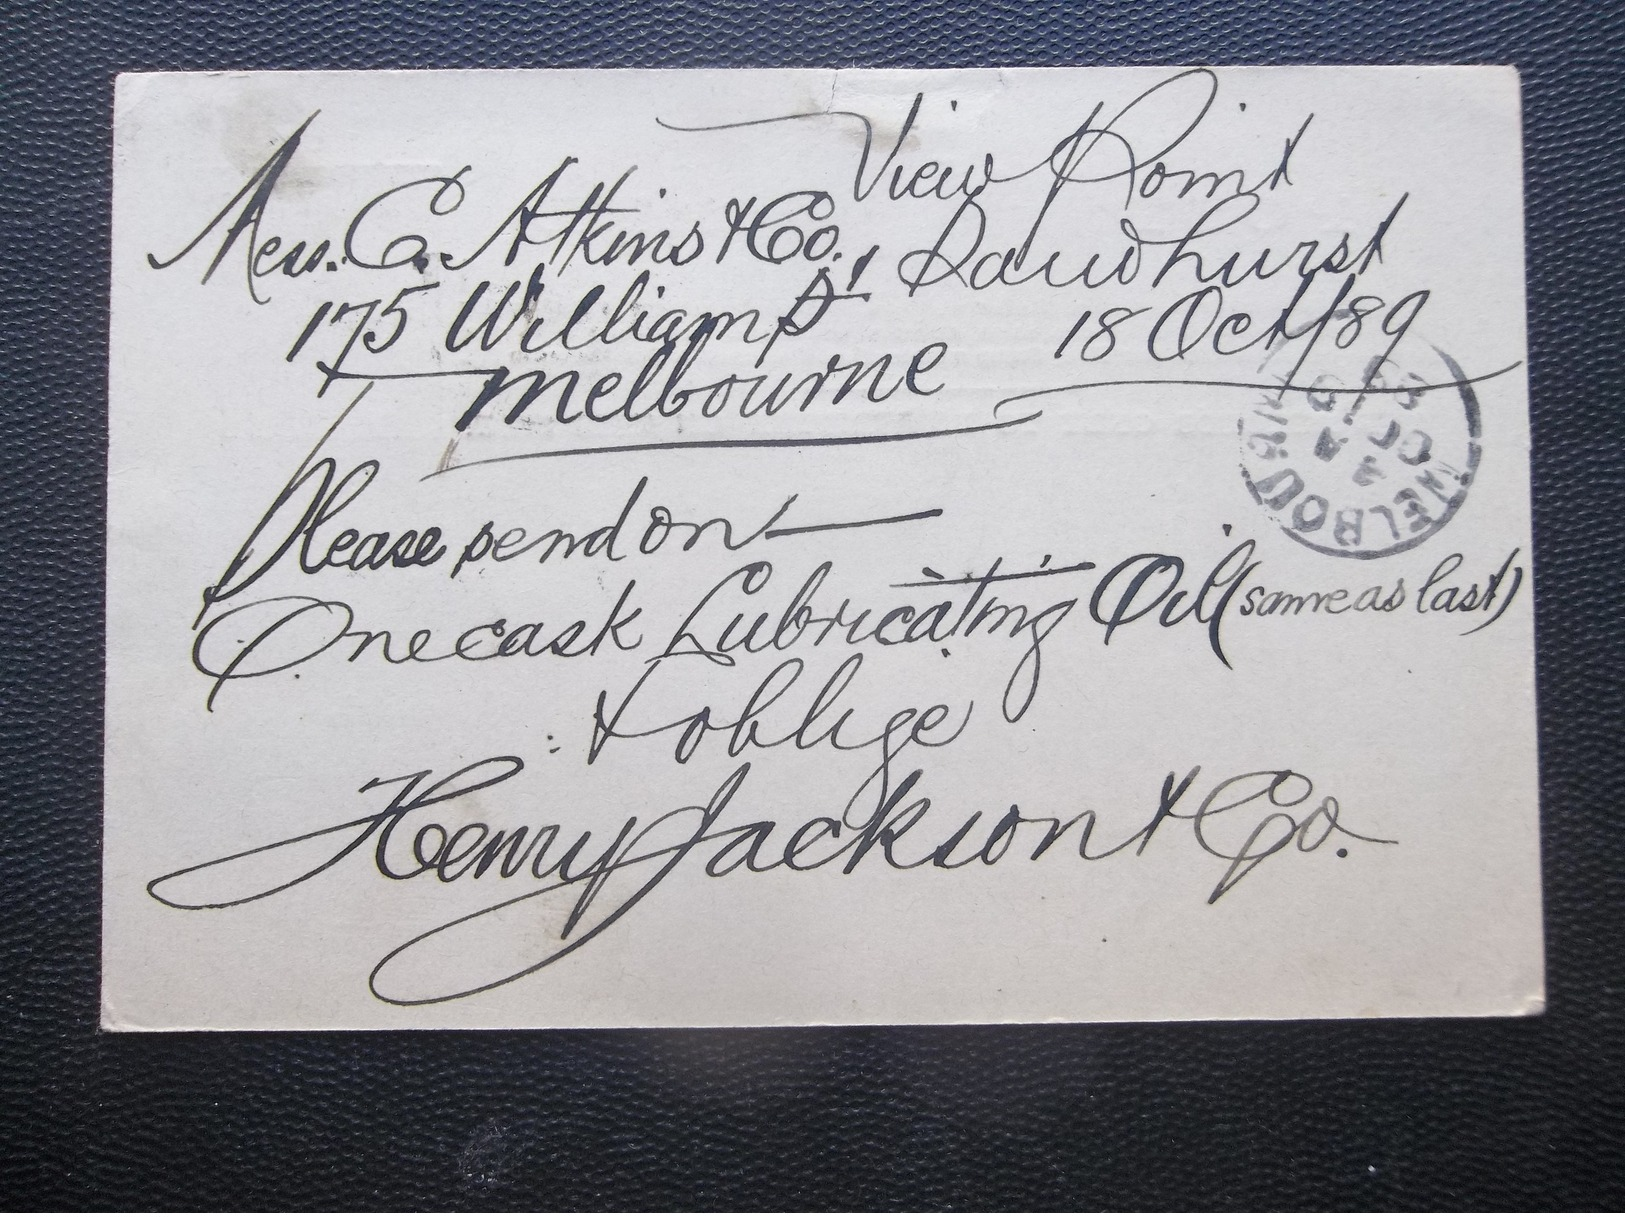 View Point
Sandhurst
18 Oct/89
Mess. C. Atkins & Co.,
175 William St
Melbourne
Please send on
One cask Lubricating Oil (same as last)
& oblige
Henry Jackson & Co.
MELBOURNE
OC
89